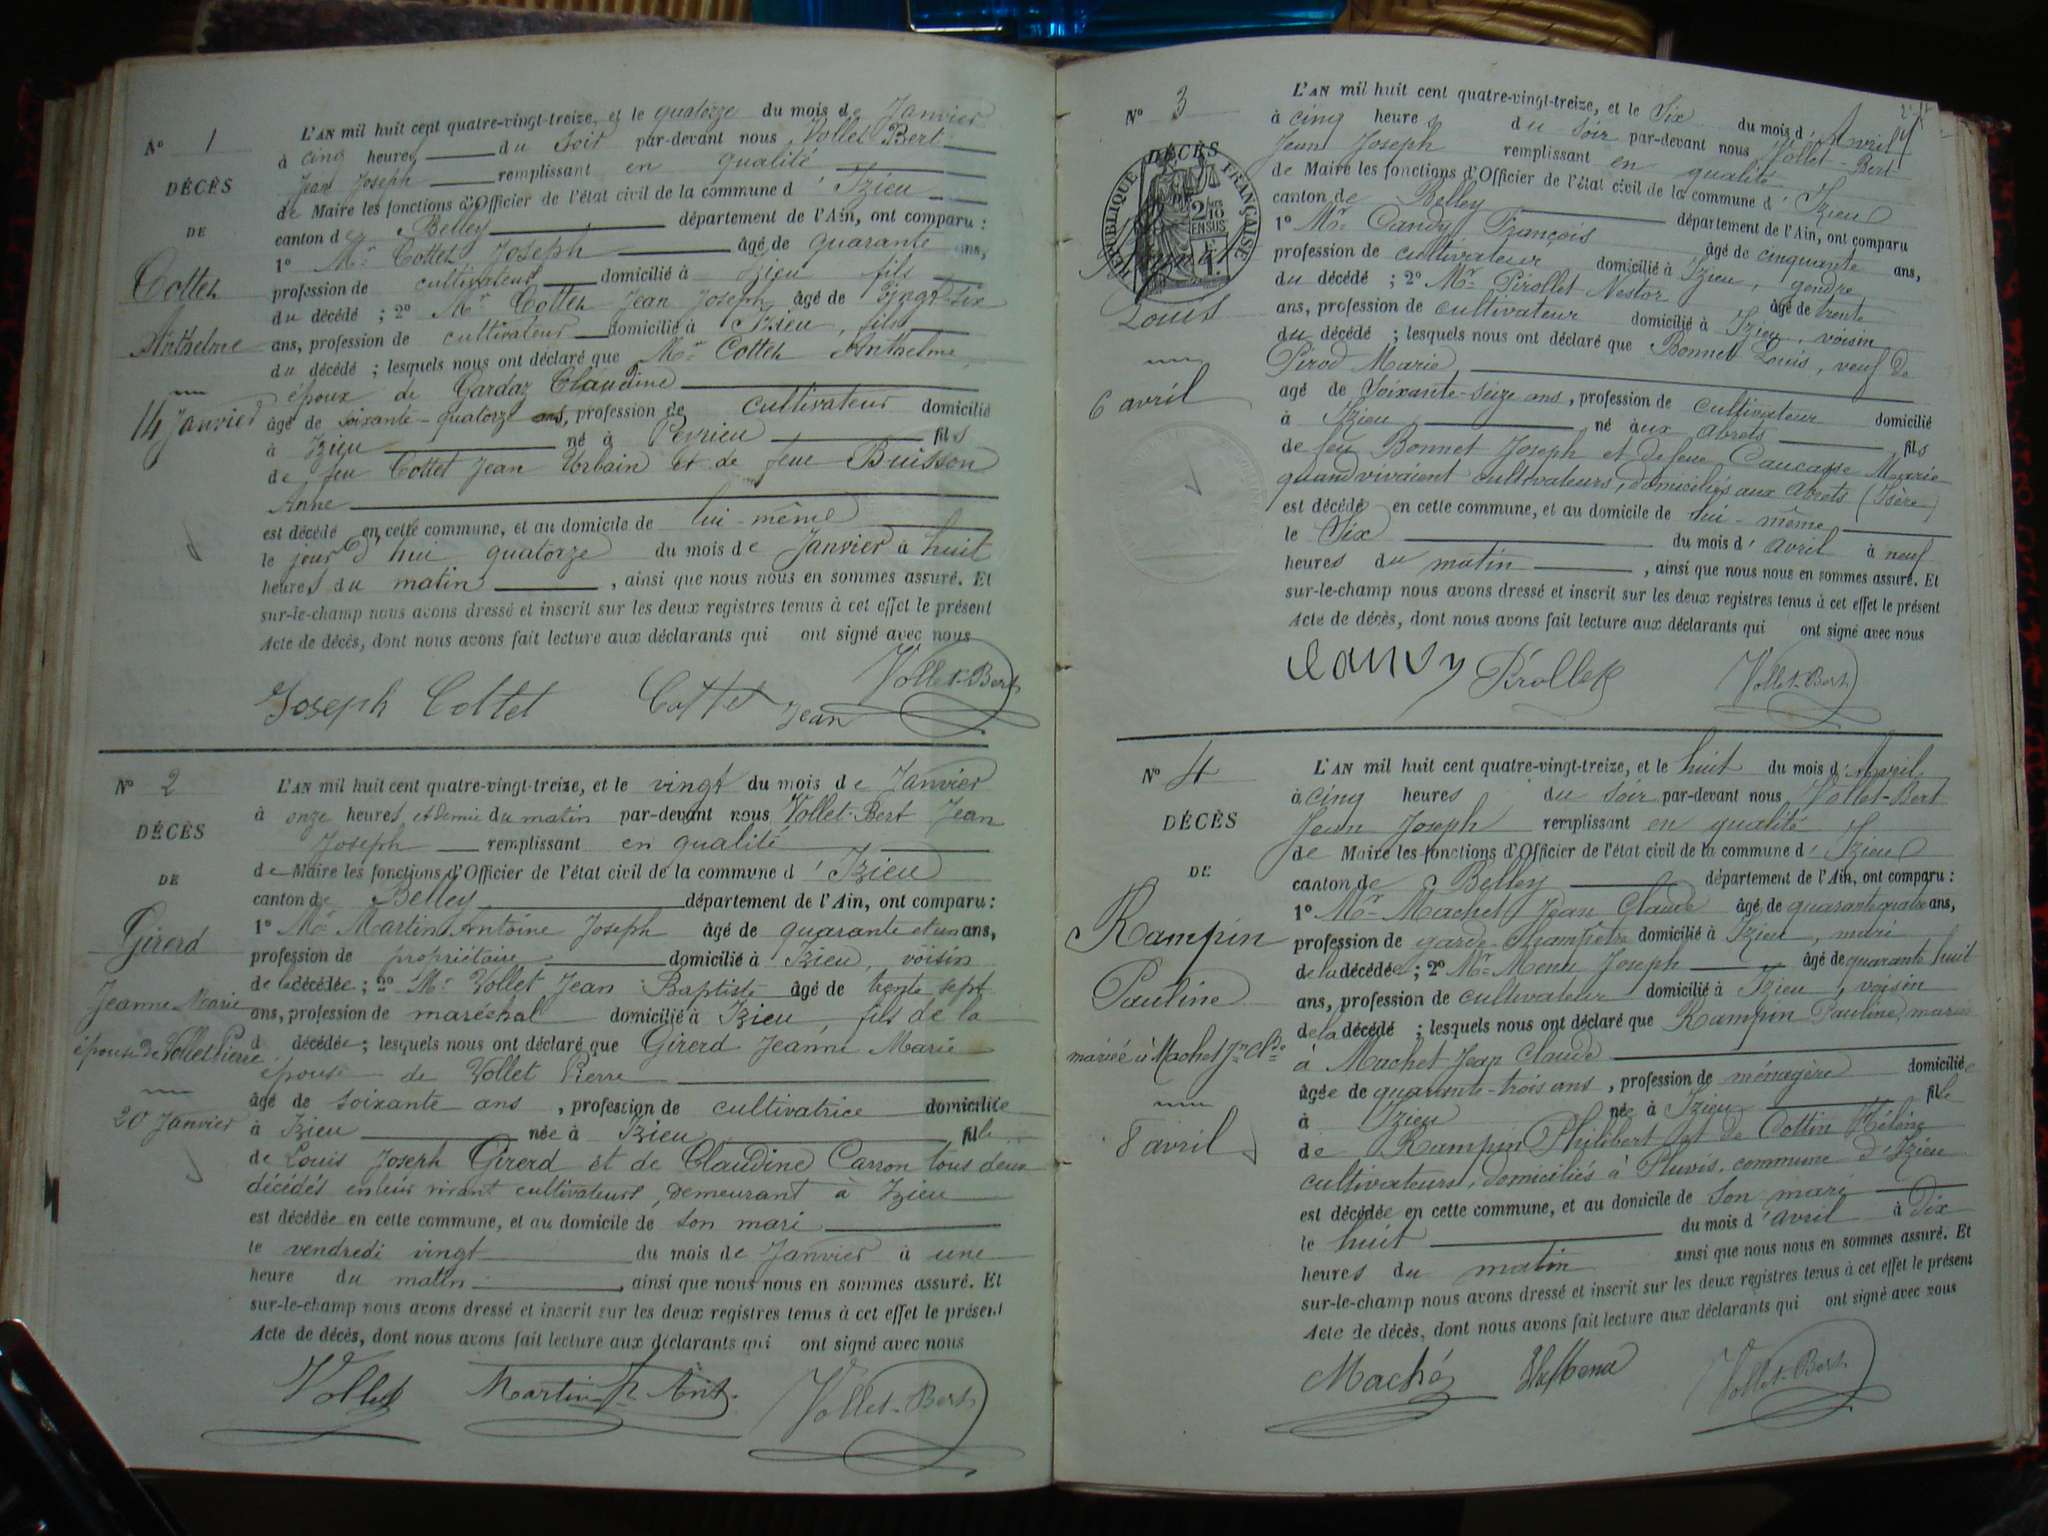 N° 1
DÉCÈS
DE
Cottet
Anthelme
14 Janvier
L'AN mil huit cent quatre-vingt-treize, et le quatorze du mois de Janvier
à cinq heures du soir par-devant nous Vollet Bert
Jean Joseph remplissant en qualité
de Maire les fonctions d'Officier de l'état civil de la commune d'Izieu
canton de Belley département de l'Ain, ont comparu :
1° Mr Cottet Joseph âgé de quarante ans,
profession de cultivateur domicilié à Izieu fils
du décédé ; 2° Mr Cottet Jean Joseph âgé de vingt-six
ans, profession de cultivateur domicilié à Izieu, fils
du décédé ; lesquels nous ont déclaré que Mr Cottet Anthelme
époux de Cardaz Claudine
âgé de soixante-quatorze ans, profession de cultivateur domicilié
à Izieu né à Peyrieu fils
de feu Cottet Jean Urbain et de feue Buisson
Anne
est décédé en cette commune, et au domicile de lui-même
le jour d'hui quatorze du mois de Janvier à huit
heures du matin, ainsi que nous nous en sommes assuré. Et
sur-le-champ nous avons dressé et inscrit sur les deux registres tenus à cet effet le présent
Acte de décès, dont nous avons fait lecture aux déclarants qui ont signé avec nous
Joseph Cottet Cottet Jean Vollet-Bert
N° 2
DÉCÈS
DE
Girerd
Jeanne Marie
épouse de Vollet Pierre
20 Janvier
L'AN mil huit cent quatre-vingt-treize, et le vingt du mois de Janvier
à onze heures et demie du matin par-devant nous Vollet-Bert Jean
Joseph remplissant en qualité
de Maire les fonctions d'Officier de l'état civil de la commune d'Izieu
canton de Belley département de l'Ain, ont comparu :
1° Mr Martin Antoine Joseph âgé de quarante et un ans,
profession de propriétaire domicilié à Izieu, voisin
de la décédée ; 2° Mr Vollet Jean Baptiste âgé de trente sept
ans, profession de maréchal domicilié à Izieu, fils de la
d décédée ; lesquels nous ont déclaré que Girerd Jeanne Marie
épouse de Vollet Pierre
âgé de soixante ans, profession de cultivatrice domiciliée
à Izieu née à Izieu fille
de Louis Joseph Girerd et de Claudine Carron tous deux
décédés en leur vivant cultivateurs, demeurant à Izieu
est décédée en cette commune, et au domicile de son mari
le vendredi vingt du mois de Janvier à une
heure du matin, ainsi que nous nous en sommes assuré. Et
sur-le-champ nous avons dressé et inscrit sur les deux registres tenus à cet effet le présent
Acte de décès, dont nous avons fait lecture aux déclarants qui ont signé avec nous
Vollet Martin Vollet-Bert
N° 3
DÉCÈS
RÉPUBLIQUE FRANÇAISE
2/10 EN SUS
Louis
6 avril
L'AN mil huit cent quatre-vingt-treize, et le Six du mois d'Avril
à cinq heures du soir par-devant nous Vollet-Bert
Jean Joseph remplissant en qualité
de Maire les fonctions d'Officier de l'état civil de la commune d'Izieu
canton de Belley département de l'Ain, ont comparu
1° Mr Candy François âgé de cinquante ans,
profession de cultivateur domicilié à Izieu, gendre
du décédé ; 2° Mr Pirollet Nestor âgé de trente
ans, profession de cultivateur domicilié à Izieu, voisin
du décédé ; lesquels nous ont déclaré que Bonnet Louis, veuf de
Pirod Marie,
agé de Soixante-seize ans, profession de cultivateur domicilié
à Izieu né aux Abrets fils
de feu Bonnet Joseph et de feue Caucasse Marie
quand vivaient cultivateurs, domiciliés aux Abrets (Isère)
est décédé en cette commune, et au domicile de lui-même
le Six du mois d'avril à neuf
heures du matin, ainsi que nous nous en sommes assuré. Et
sur-le-champ nous avons dressé et inscrit sur les deux registres tenus à cet effet le présent
Acte de décès, dont nous avons fait lecture aux déclarants qui ont signé avec nous
Candy Pirollet Vollet-Bert
N° 4
DÉCÈS
DE
Rampin
Pauline
mariée à Machet Jn Cde
8 avril
L'AN mil huit cent quatre-vingt-treize, et le huit du mois d'Avril
à cinq heures du soir par-devant nous Vollet-Bert
Jean Joseph remplissant en qualité
de Maire les fonctions d'Officier de l'état civil de la commune d'Izieu
canton de Belley département de l'Ain, ont comparu :
1° Mr Machet Jean Claude âgé de quarante quatre ans,
profession de garde-champêtre domicilié à Izieu, mari
de la décédée ; 2° Mr Menu Joseph âgé de quarante huit
ans, profession de cultivateur domicilié à Izieu, voisin
de la décédé ; lesquels nous ont déclaré que Rampin Pauline, mariée
à Machet Jean Claude
âgée de quarante-trois ans, profession de ménagère domiciliée
à Izieu née à Izieu fille
de Rampin Philibert et de Cottin Hélène
cultivateurs, domiciliés à Pluvis, commune d'Izieu
est décédée en cette commune, et au domicile de son mari
le huit du mois d'avril à dix
heures du matin ainsi que nous nous en sommes assuré. Et
sur-le-champ nous avons dressé et inscrit sur les deux registres tenus à cet effet le présent
Acte de décès, dont nous avons fait lecture aux déclarants qui ont signé avec nous
Maché Vollet-Bert